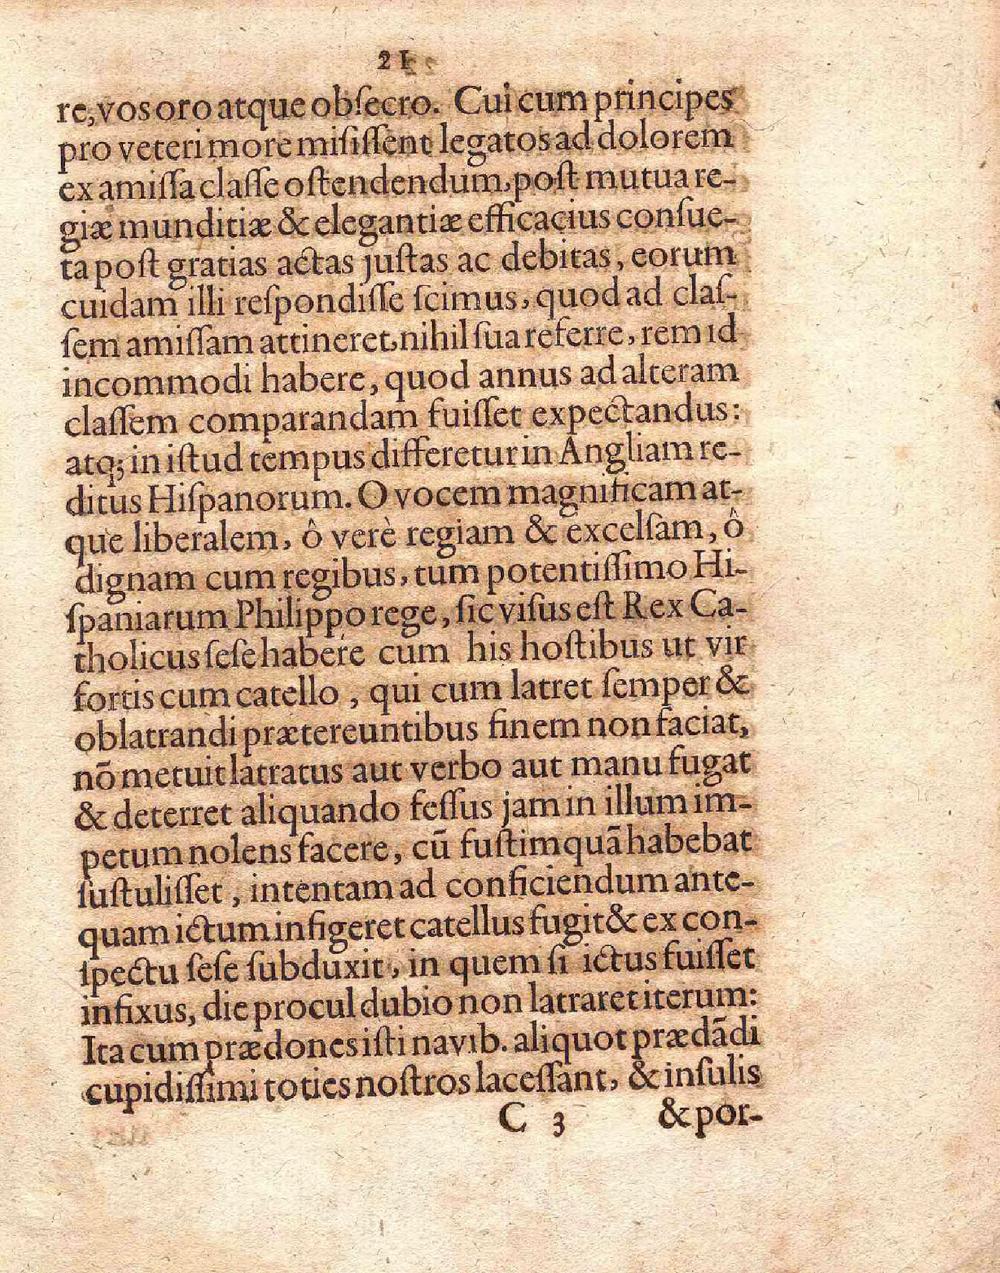 21
re, vos oro atque obſecro. Cui cum principes
pro veteri more miſiſſent legatos ad dolorem
ex amiſſa claſſe oſtendendum, poſt mutua re-
giæ munditiæ & elegantiæ efficacius conſue-
ta poſt gratias actas juſtas ac debitas, eorum
cuidam illi reſpondiſſe ſcimus, quod ad claſ-
ſem amiſſam attineret, nihil ſua referre, rem id
incommodi habere, quod annus ad alteram
claſſem comparandam fuiſſet expectandus:
atq; in iſtud tempus differetur in Angliam re-
ditus Hiſpanorum. O vocem magnificam at-
que liberalem, ô verè regiam & excelſam, ô
dignam cum regibus, tum potentiſſimo Hi-
ſpaniarum Philippo rege, ſic viſus eſt Rex Ca-
tholicus ſeſe habere cum his hoſtibus ut vir
fortis cum catello, qui cum latret ſemper &
oblatrandi prætereuntibus finem non faciat,
nõ metuit latratus aut verbo aut manu fugat
& deterret aliquando feſſus jam in illum im-
petum nolens facere, cũ fuſtim quã habebat
ſuſtuliſſet, intentam ad conficiendum ante-
quam ictum infigeret catellus fugit & ex con-
ſpectu ſeſe ſubduxit, in quem ſi ictus fuiſſet
infixus, die procul dubio non latraret iterum:
Ita cum prædones iſti navib. aliquot prædãdi
cupidiſſimi toties noſtros laceſſant, & inſulis
C 3 & por-